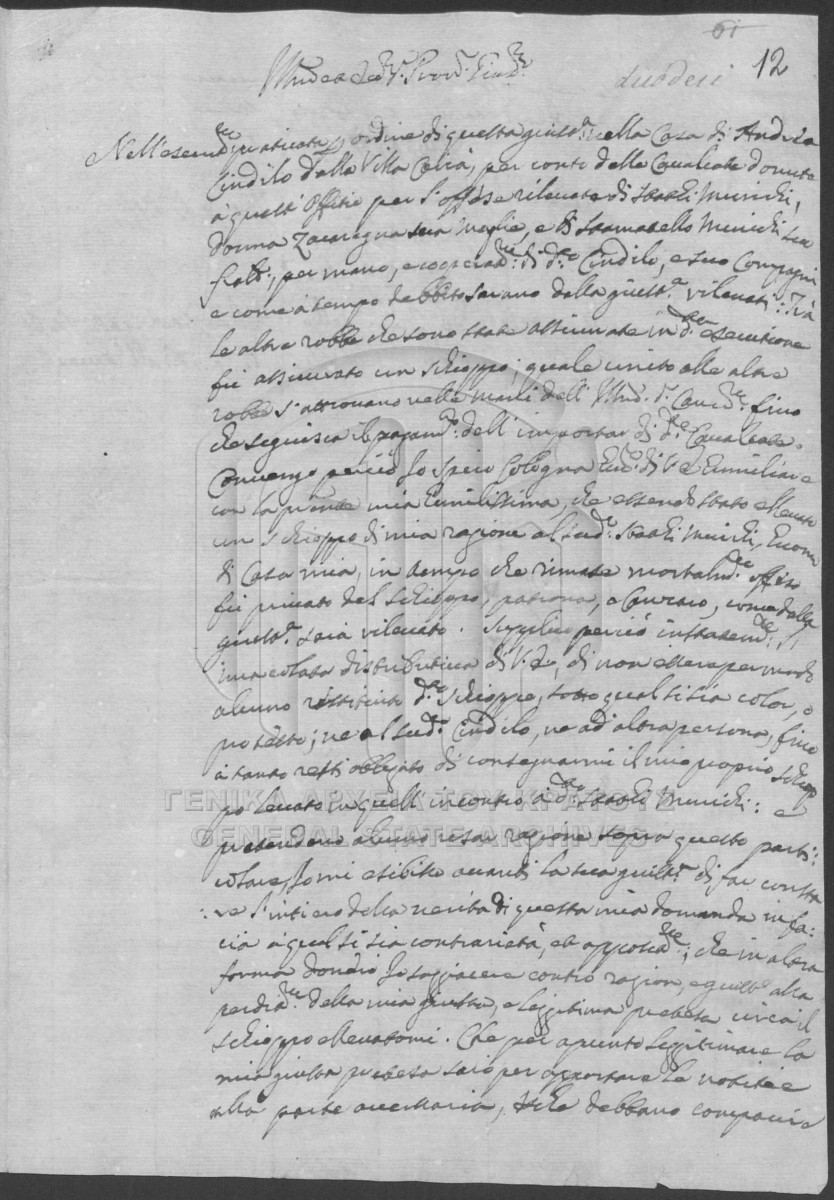 61
12
duodeci
Nell'esecut.ne praticata p ordine di questa giust.a nella Casa di Andrea
Cindilo della Villa Calià, per conti delle Cavalcate dovute
à quest' Offitio per l'offese rilevate di Statti Munichi,
donna Zacaregna sua moglie, e di Stamatello Munichi suo
frat.o, per mano, e cooperat.ne di d.to Cindilo, e suo Compagni
e come à tempo debbito sarano dalla giust.a rilevati: Trà
le altre robbe che sono state assicurate in d.ta esecutione
fù assicurato un schioppo; quale unito alle altre
robbe s'attrovano nelle mani dell' Ill.mo d. fino
che seguisca il pagam.to dell' importar di d.te Cavalcate.
Convengo perciò Io Spiro Cologna di V.E. umiliare
con la p̃nte mia umilissima, che essendo stato ellevato
un schioppo di mia ragione al sud.to Statti Munichi,
di Casa mia, in tempo che rimase mortalm.te offeso
fù privato del schioppo, patrona, e come dalla
giust.a sarà rilevato. Supplico perciò
imacolata distributiva di V.E., di non essere per modo
alcuno restituito d.to schioppo, sotto qual si sia color, o
pretesto; ne al sud.to Cindilo, ne ad altra persona, fino
à tanto resti obligato di consegnarmi il mio proprio schiop
po levato in quell' incontro, à d.to Statti Munichi: e
pretendere alcuno usar ragione sopra questo parti:
colare, Io mi esibito avanti la sua giust.a di far consta
:re l'intiero della verità di questa mia domanda in fa:
cia à qual si sia contrarietà, et ; che in altra
forma dovrò Io soggiacere contro ragion, e giust.a alla
perdita della mia giusta, e legitima pretesa circa il
schioppo ellevatomi. Che per apunto legitimare la
mia giusta pretesa sarò per apportare le notitie
alla parte aversaria, debbano comparir
ΓΕΝΙΚΑ ΑΡΧΕΙΑ ΤΟΥ ΚΡΑΤΟΥΣ
GENERAL STATE ARCHIVES